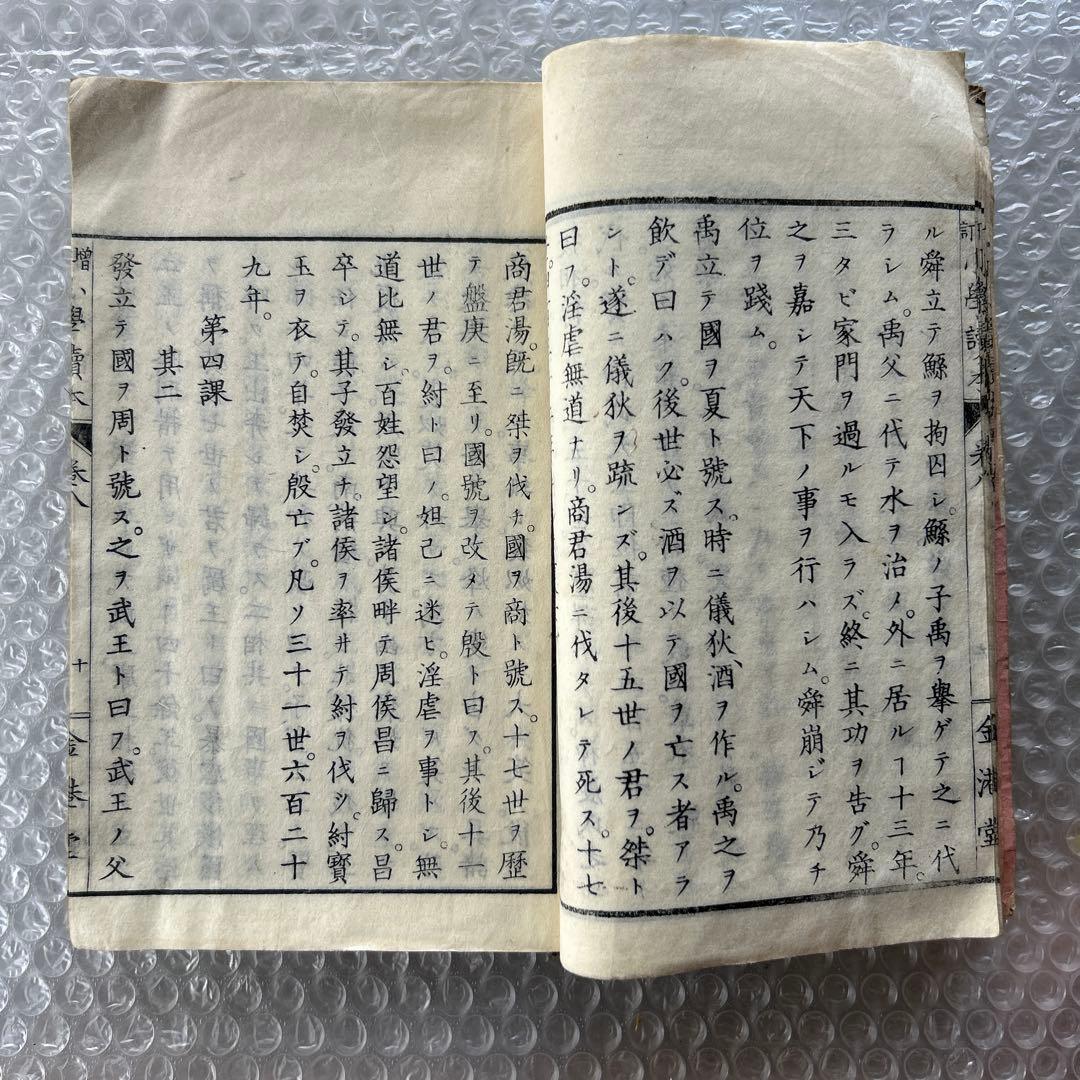 ル舜立テ鯀ヲ拘囚シ。鯀ノ子禹ヲ擧ゲテ之ニ代
ラシム。禹父ニ代テ水ヲ治ノ。外ニ居ルヿ十三年。
三タビ家門ヲ過ルモ入ラズ。終ニ其功ヲ告グ。舜
之ヲ嘉シテ天下ノ事ヲ行ハシム。舜崩ジテ乃チ
位ヲ踐ム。
禹立テ國ヲ夏ト號ス。時ニ儀狄、酒ヲ作ル。禹之ヲ
飮デ曰ハク。後世必ズ酒ヲ以テ國ヲ亡ス者アラ
ント。遂ニ儀狄ヲ疏ンズ。其後十五世ノ君ヲ。桀ト
曰フ。淫虐無道ナリ。商君湯ニ伐タレテ死ス。十七
金港堂
商君湯。旣ニ桀ヲ伐チ。國ヲ商ト號ス。十七世ヲ歷
テ盤庚ニ至リ。國號ヲ改メテ殷ト曰ス。其後十一
世ノ君ヲ。紂ト曰ノ。妲己ニ迷ヒ。淫虐ヲ事トシ。無
道比無シ。百姓怨望シ。諸侯畔テ周侯昌ニ歸ス。昌
卒シテ。其子發立チ。諸侯ヲ率井テ紂ヲ伐シ。紂寶
玉ヲ衣テ。自焚シ。殷亡ブ。凡ソ三十一世。六百二十
九年。
第四課
其二
發立テ國ヲ周ト號ス。之ヲ武王ト曰フ。武王ノ父
增 小學讀本 卷八 十 金港堂